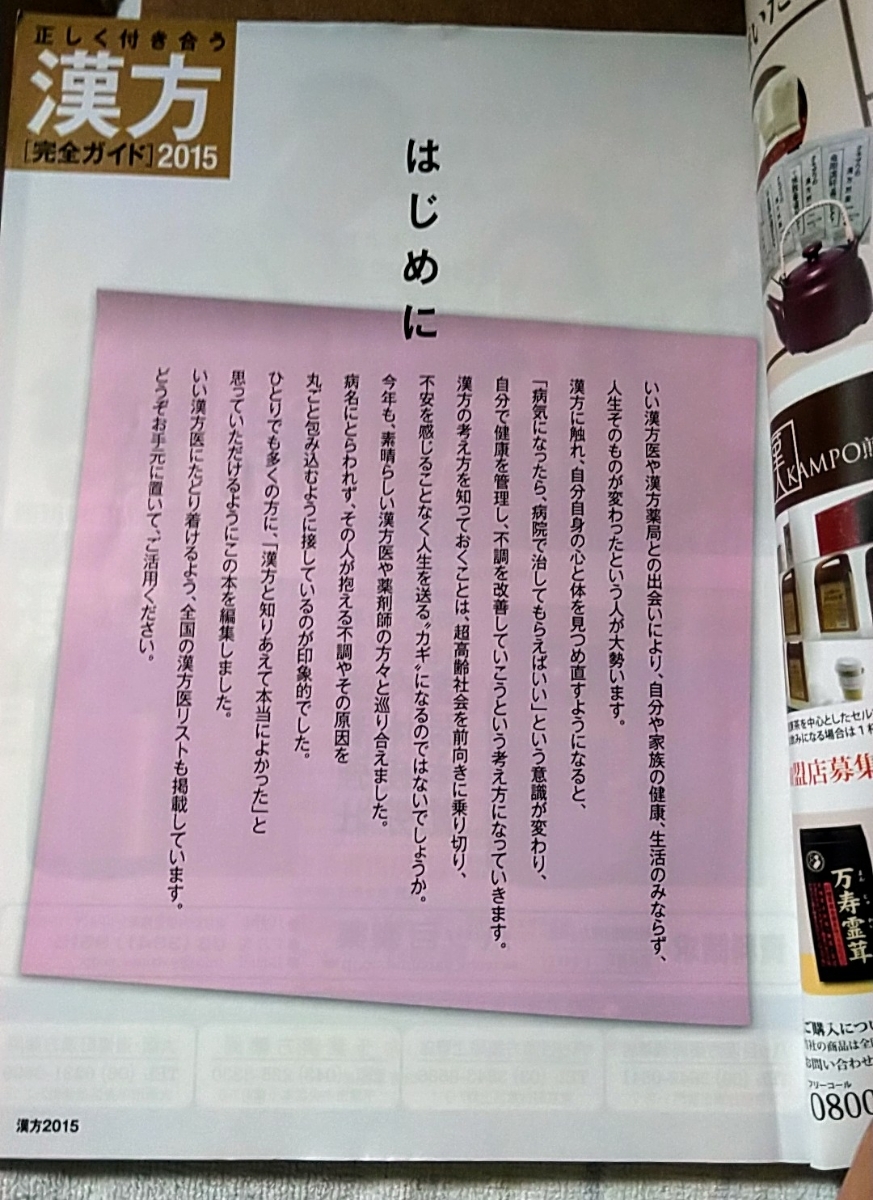 正しく付き合う
漢方
[完全ガイド]2015
はじめに
いい漢方医や漢方薬局との出会いにより、自分や家族の健康、生活のみならず、
人生そのものが変わったという人が大勢います。
漢方に触れ、自分自身の心と体を見つめ直すようになると、
「病気になったら、病院で治してもらえばいい」という意識が変わり、
自分で健康を管理し、不調を改善していこうという考え方になっていきます。
漢方の考え方を知っておくことは、超高齢社会を前向きに乗り切り、
不安を感じることなく人生を送る〝カギ〟になるのではないでしょうか。
今年も、素晴らしい漢方医や薬剤師の方々と巡り合えました。
病名にとらわれず、その人が抱える不調やその原因を
丸ごと包み込むように接しているのが印象的でした。
ひとりでも多くの方に、「漢方と知りあえて本当によかった」と
思っていただけるようにこの本を編集しました。
いい漢方医にたどり着けるよう、全国の漢方医リストも掲載しています。
どうぞお手元に置いて、ご活用ください。
漢方2015
KAMPO煎
茶を中心としたセル
飲みになる場合は1杯
盟店募集
万寿霊茸
ご購入につい
社の商品は全
お問い合わせ
フリーコール
0800